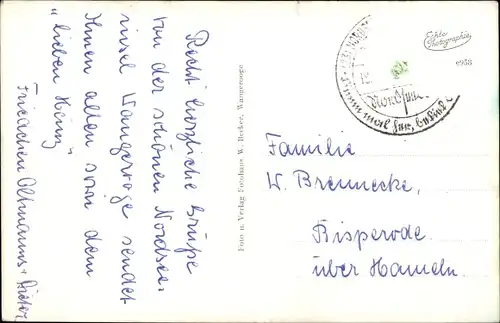 Recht herzliche Grüße
von der schönen Nordsee-
insel Wangerooge sendet
Ihnen allen sowie dem
"lieben Heinz"
Frieachen Oltmanns + Dieter
Foto u. Verlag Fotohaus W. Becker, Wangerooge
Echte Photographie
6958
Familie
W. Brennecke,
Bisperode.
über Hameln.